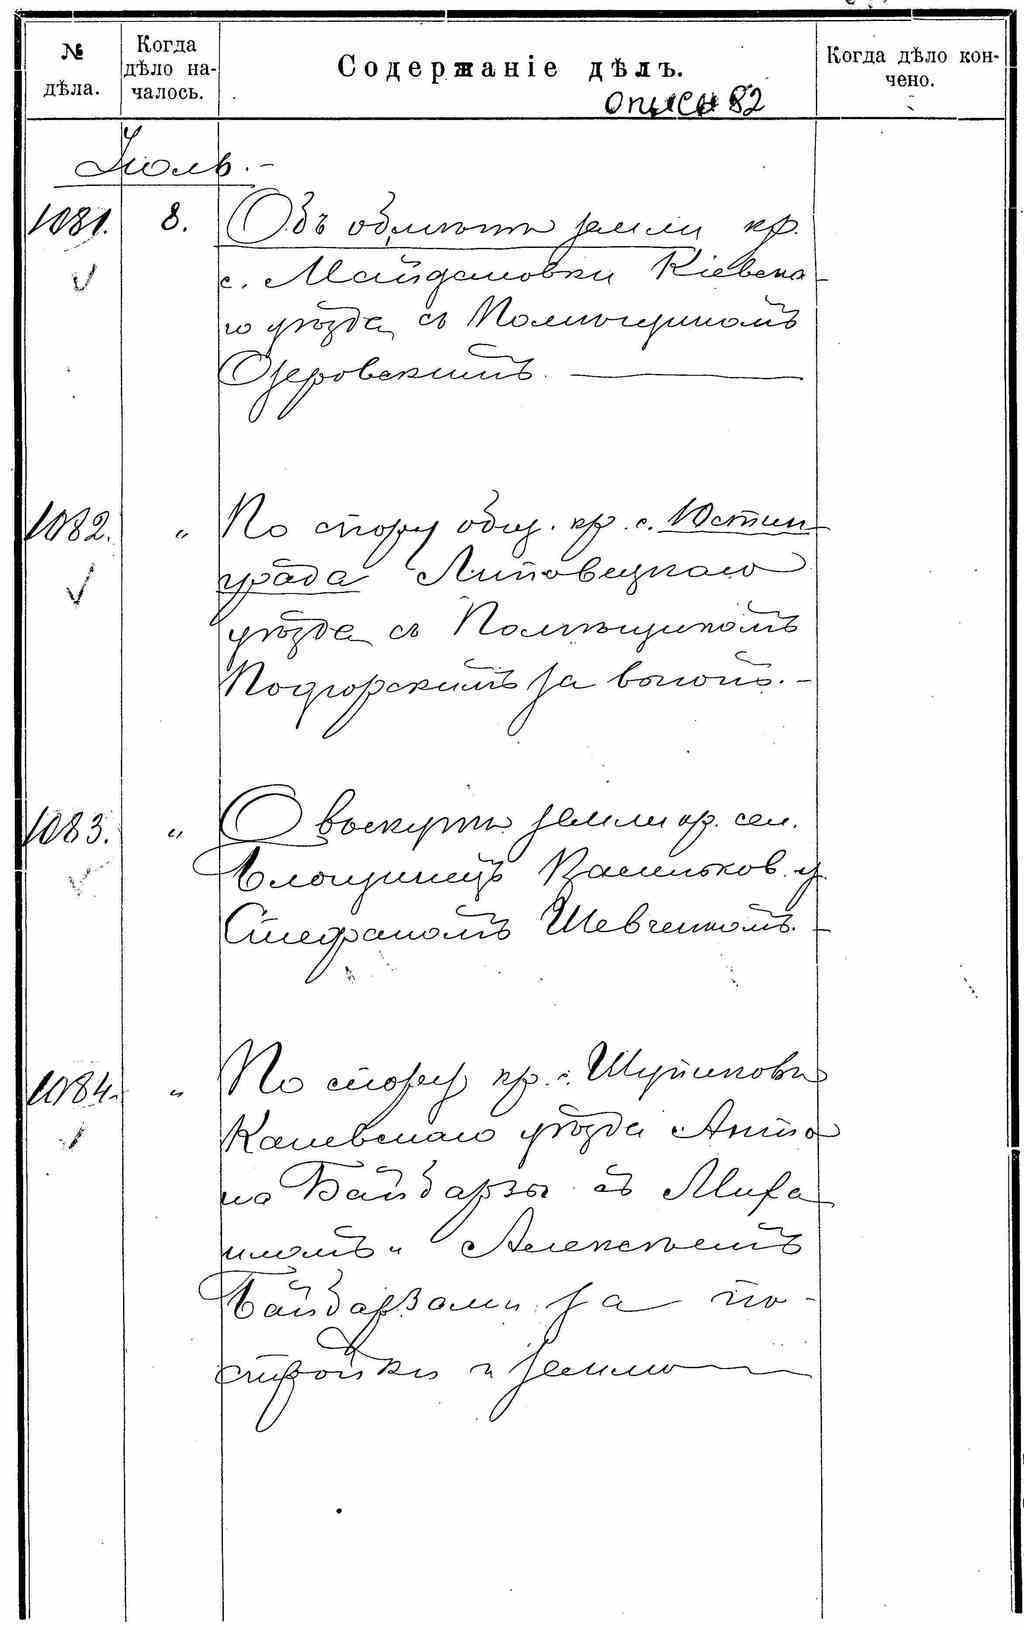 № дѣла.
Когда дѣло на-
чалось.
Содержаніе дѣлъ.
Когда дѣло кон-
чено.
описи 82
Іюль.-
1081. 8. Объ обмѣнѣ земли кр.
с. Майдановки Кіевска-
го уѣзда съ Помѣщикомъ
Озеровскимъ.
1082. „ По спору общ. кр. с. Юстин
града Липовецкаго
уѣзда съ Помѣщикомъ
Подгорскимъ за выгонъ.-
1083. „ О выкупѣ земли кр. сел.
Блощинецъ Васильков. у.
Стефаномъ Шевченкомъ.-
1084. „ По спору кр. с. Шупиковъ
Каневскаго уѣзда Анто
на Байбарзы съ Миха
иломъ и Алексѣемъ
Байбарзами за по-
стройки и землю